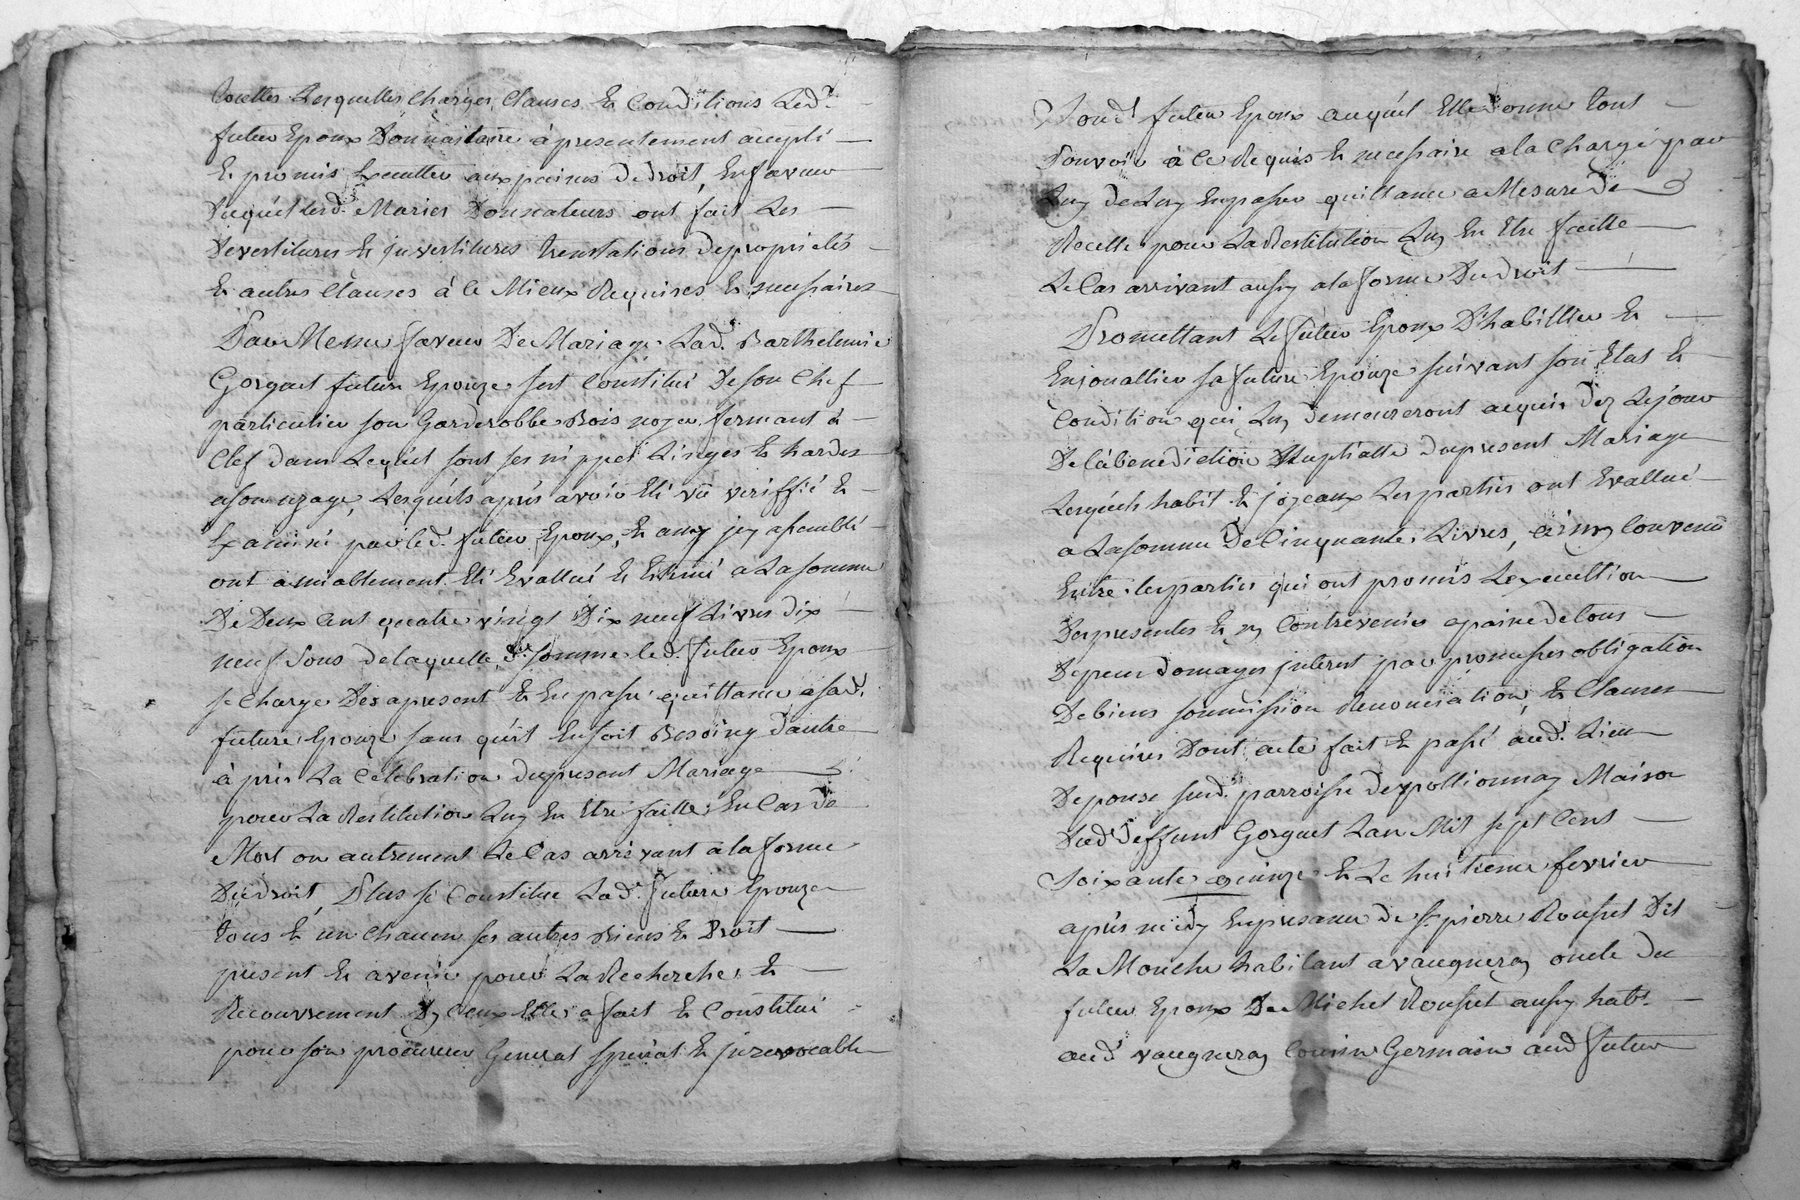 touttes Lesquelles Charges, Clauses Et Conditions Led.t
futur Epoux Donnataire à presentement accepté
Et promis Executter aux peines de droit, En faveur
Duquel lesd. Maries Donnateurs ont fait Les
Devestitures Et jnvestitures translations de proprietés
Et autres Clauses à Ce Mieux Requises Et necessaires
Par Meme faveur De Mariage Lad. Barthelemie
Gorguet future Epouze sest Constitué De son Chef
particulier son Garderobbe Bois noyer fermant à
Clef dans Lequel sont ses nippes Linges Et hardes
a son uzage, Lesquels après avoir Eté vû veriffié Et
Examiné par led. futur Epoux, Et amy jcy assemblé
ont amiablement Eté Evallué Et Estimé a La somme
De Deux Cent quatre vingt Dix neuf Livres dix
neuf sous de laquelle d.e somme led. futur Epoux
se Charge Des apresent Et En passe quittance a sad.
future Epouze sans qu'il En soit Besoing d'autre
après La Celebration du present Mariage
pour La Restitution Luy En Etre faitte En Cas de
Mort ou autrement Le Cas arrivant a la forme
Du droit, Plus se Constitue Lad.e future Epouze
tous Et un Chacun ses autres Biens Et Droit
present Et avenir pour La Recherche Et
Recouvrement D'yceux Elle a fait Et Constitué
pour son procureur General special Et jrrevocable
Soud.t futur Epoux auquel Elle donne tout
Pouvoir à Ce Requis Et necessaire a la Charge par
Luy de Luy En passer quittance a Mesure De
Recette pour La Restitution Luy En Etre faitte
Le Cas arrivant aussy a la forme Du droit
Promettant Le futur Epoux D'habillier Et
Enjouallier sa future Epouze suivant son Etat Et
Condition qui Luy demeureront acquis dez Le jour
De la benediction Nuptialle du present Mariage
Lesquels habit Et joyeaux Les parties ont Evallué
a La somme De Cinquante Livres, ainsy Convenu
Entre les parties qui ont promis L'execution
Des presentes Et n'y Contrevenir a paine de tous
Depens domages jnterest par promesses obligation
De biens soumission Renonciation, Et Clauses
Requises Dont acte fait Et passé aud. Lieu
De ponse sud. parroisse de pollionnay Maison
Dud. deffunt Gorguet L'an Mil sept Cent
Soixante quinze Et Le huitieme fevrier
après midy En presence de s.r pierre Rousset Dit
La Mouche habitant a vaugneray oncle du
futur Epoux De Michel Rousset aussy hab.t
aud.t vaugneray Cousin Germain aud futur